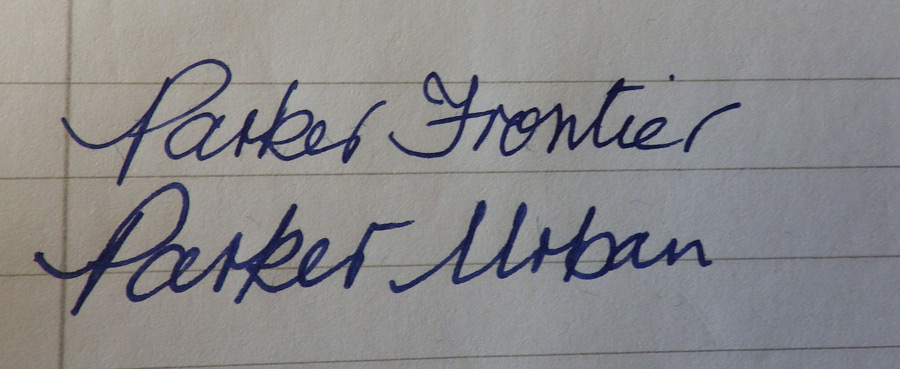 Parker Frontier
Parker Urban